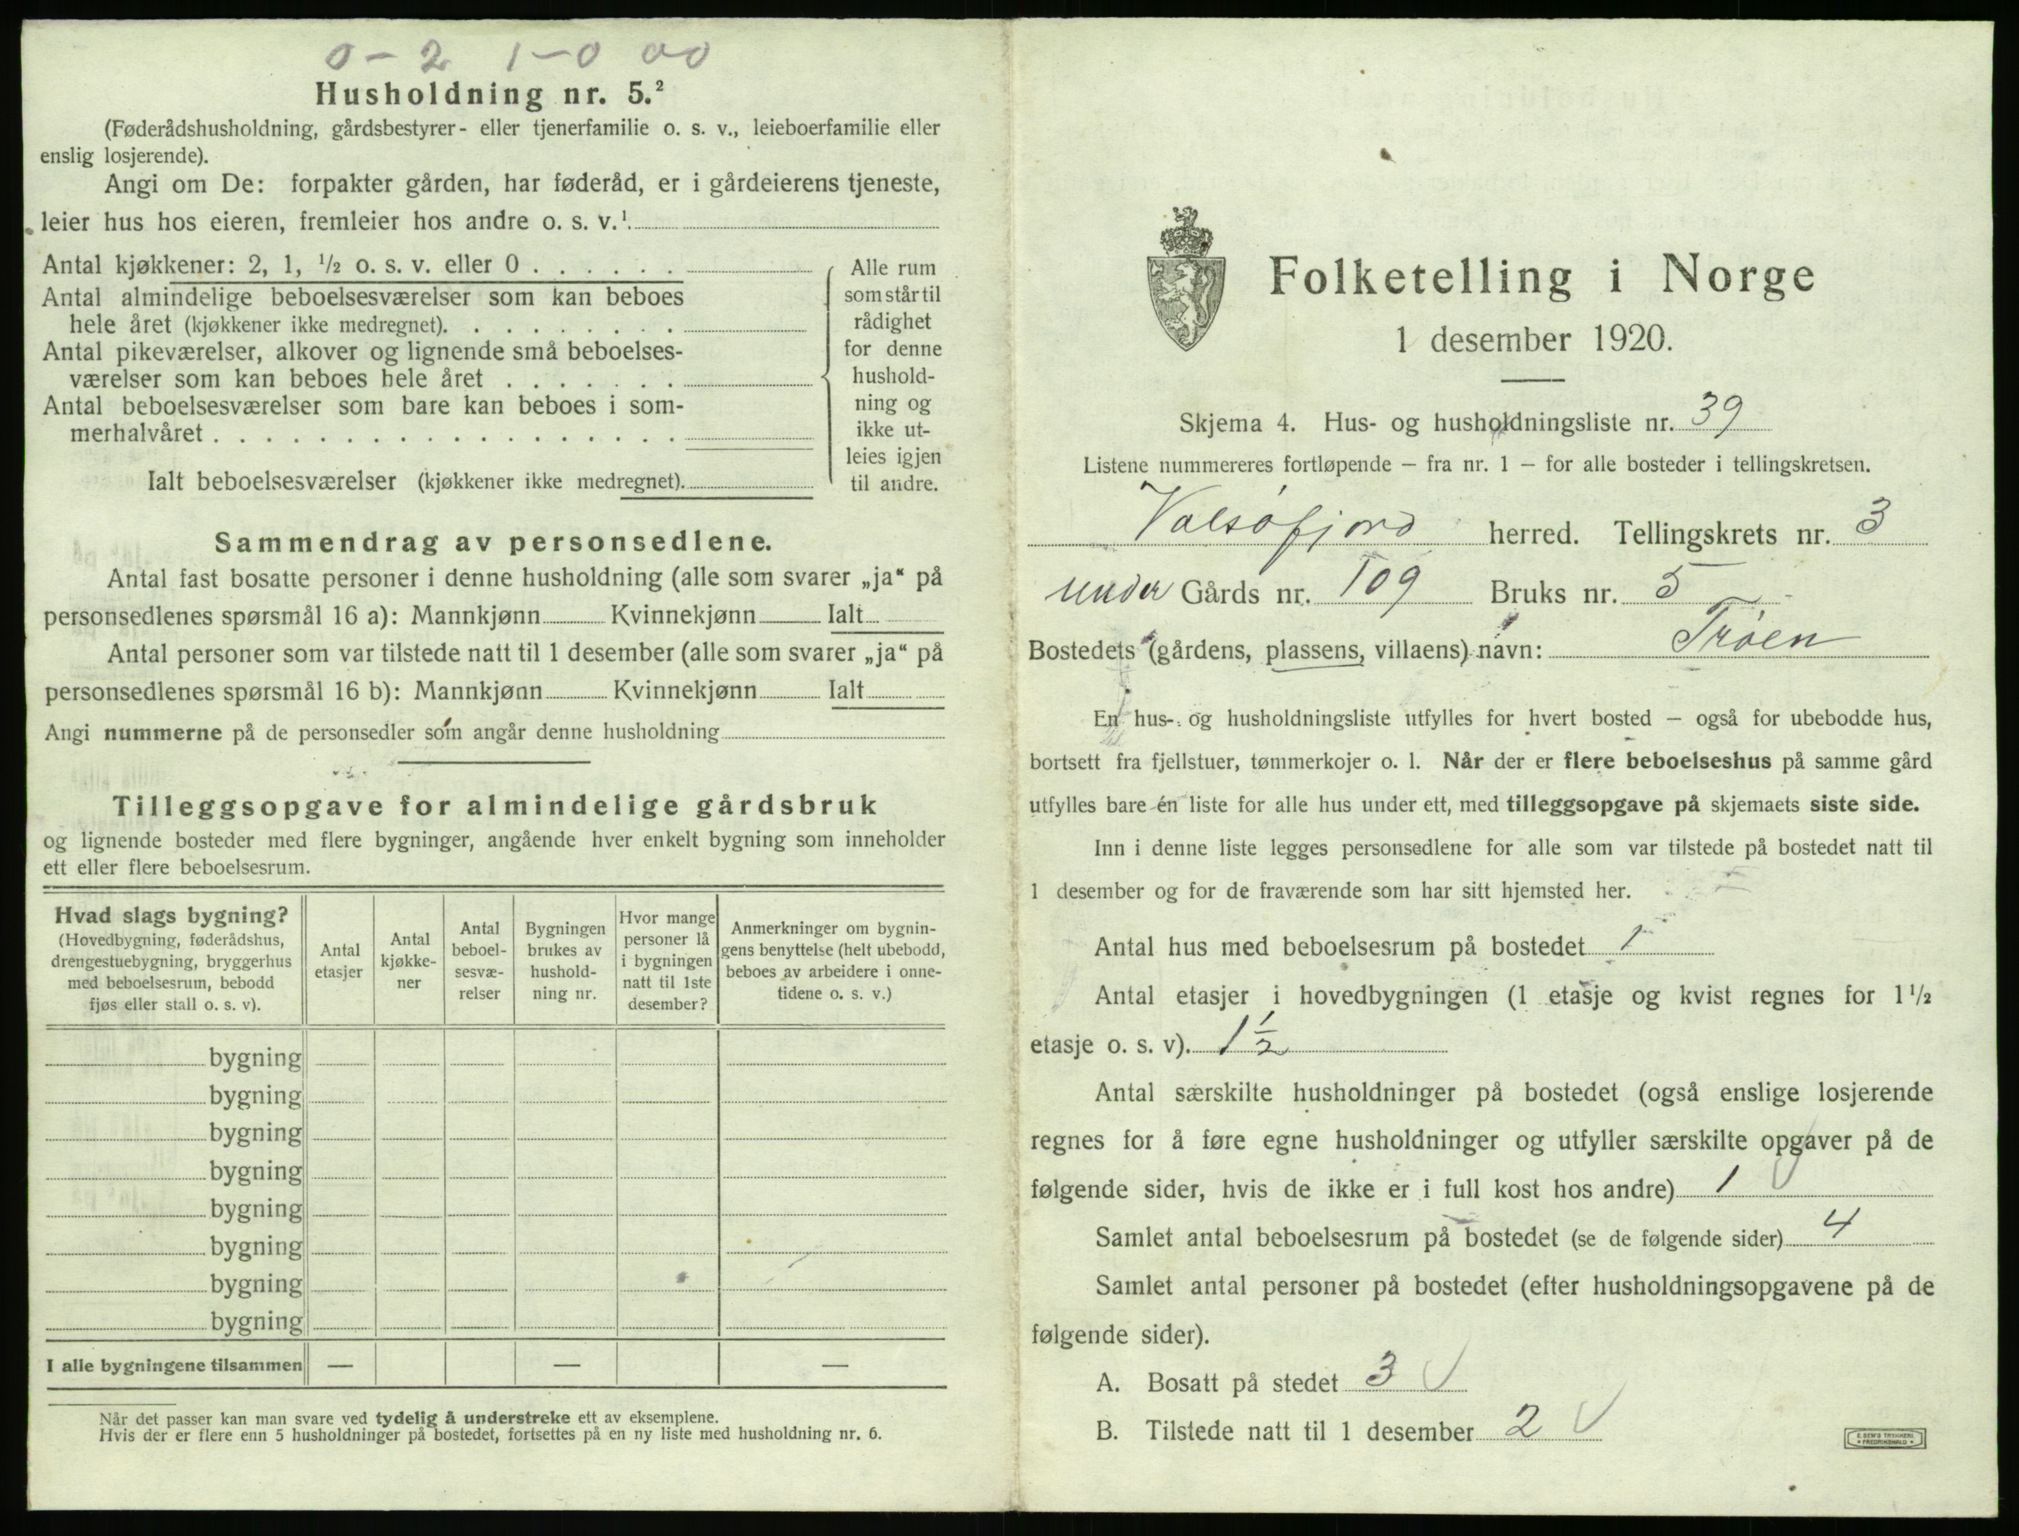 0 - 2 1 - 0 00
Husholdning nr. 5.²
(Føderådshusholdning, gårdsbestyrer- eller tjenerfamilie o. s. v., leieboerfamilie eller
enslig losjerende).
Angi om De: forpakter gården, har føderåd, er i gårdeierens tjeneste,
leier hus hos eieren, fremleier hos andre o. s. v.¹
Antal kjøkkener: 2, 1, ½ o. s. v. eller 0
Antal almindelige beboelsesværelser som kan beboes
hele året (kjøkkener ikke medregnet).
Antal pikeværelser, alkover og lignende små beboelses-
værelser som kan beboes hele året
Antal beboelsesværelser som bare kan beboes i som-
merhalvåret
Ialt beboelsesværelser (kjøkkener ikke medregnet).
Alle rum
som står til
rådighet
for denne
hushold-
ning og
ikke ut-
leies igjen
til andre.
Sammendrag av personsedlene.
Antal fast bosatte personer i denne husholdning (alle som svarer „ja“ på
personsedlenes spørsmål 16 a): Mannkjønn Kvinnekjønn Ialt
Antal personer som var tilstede natt til 1 desember (alle som svarer „ja“ på
personsedlenes spørsmål 16 b): Mannkjønn Kvinnekjønn Ialt
Angi nummerne på de personsedler som angår denne husholdning
Tilleggsopgave for almindelige gårdsbruk
og lignende bosteder med flere bygninger, angående hver enkelt bygning som inneholder
ett eller flere beboelsesrum.
Hvad slags bygning?
(Hovedbygning, føderådshus,
drengestuebygning, bryggerhus
med beboelsesrum, bebodd
fjøs eller stall o. s. v).
Antal
etasjer
Antal
kjøkke-
ner
Antal
beboel-
sesvæ-
relser
Bygningen
brukes av
hushold-
ning nr.
Hvor mange
personer lå
i bygningen
natt til 1ste
desember?
Anmerkninger om bygnin-
gens benyttelse (helt ubebodd,
beboes av arbeidere i onne-
tidene o. s. v.)
bygning
bygning
bygning
bygning
bygning
bygning
bygning
bygning
I alle bygningene tilsammen — — —
Når det passer kan man svare ved tydelig å understreke ett av eksemplene.
Hvis der er flere enn 5 husholdninger på bostedet, fortsettes på en ny liste med husholdning nr. 6.
Folketelling i Norge
1 desember 1920.
Skjema 4. Hus- og husholdningsliste nr. 39
Listene nummereres fortløpende – fra nr. 1 – for alle bosteder i tellingskretsen.
Valsøfjord herred. Tellingskrets nr. 3
under Gårds nr. 109 Bruks nr. 5
Bostedets (gårdens, plassens, villaens) navn: Trøen
En hus- og husholdningsliste utfylles for hvert bosted – også for ubebodde hus,
bortsett fra fjellstuer, tømmerkojer o. l. Når der er flere beboelseshus på samme gård
utfylles bare én liste for alle hus under ett, med tilleggsopgave på skjemaets siste side.
Inn i denne liste legges personsedlene for alle som var tilstede på bostedet natt til
1 desember og for de fraværende som har sitt hjemsted her.
Antal hus med beboelsesrum på bostedet 1
Antal etasjer i hovedbygningen (1 etasje og kvist regnes for 1½
etasje o. s. v). 1½
Antal særskilte husholdninger på bostedet (også enslige losjerende
regnes for å føre egne husholdninger og utfyller særskilte opgaver på de
følgende sider, hvis de ikke er i full kost hos andre) 1
Samlet antal beboelsesrum på bostedet (se de følgende sider) 4
Samlet antal personer på bostedet (efter husholdningsopgavene på de
følgende sider).
A. Bosatt på stedet 3
B. Tilstede natt til 1 desember 2